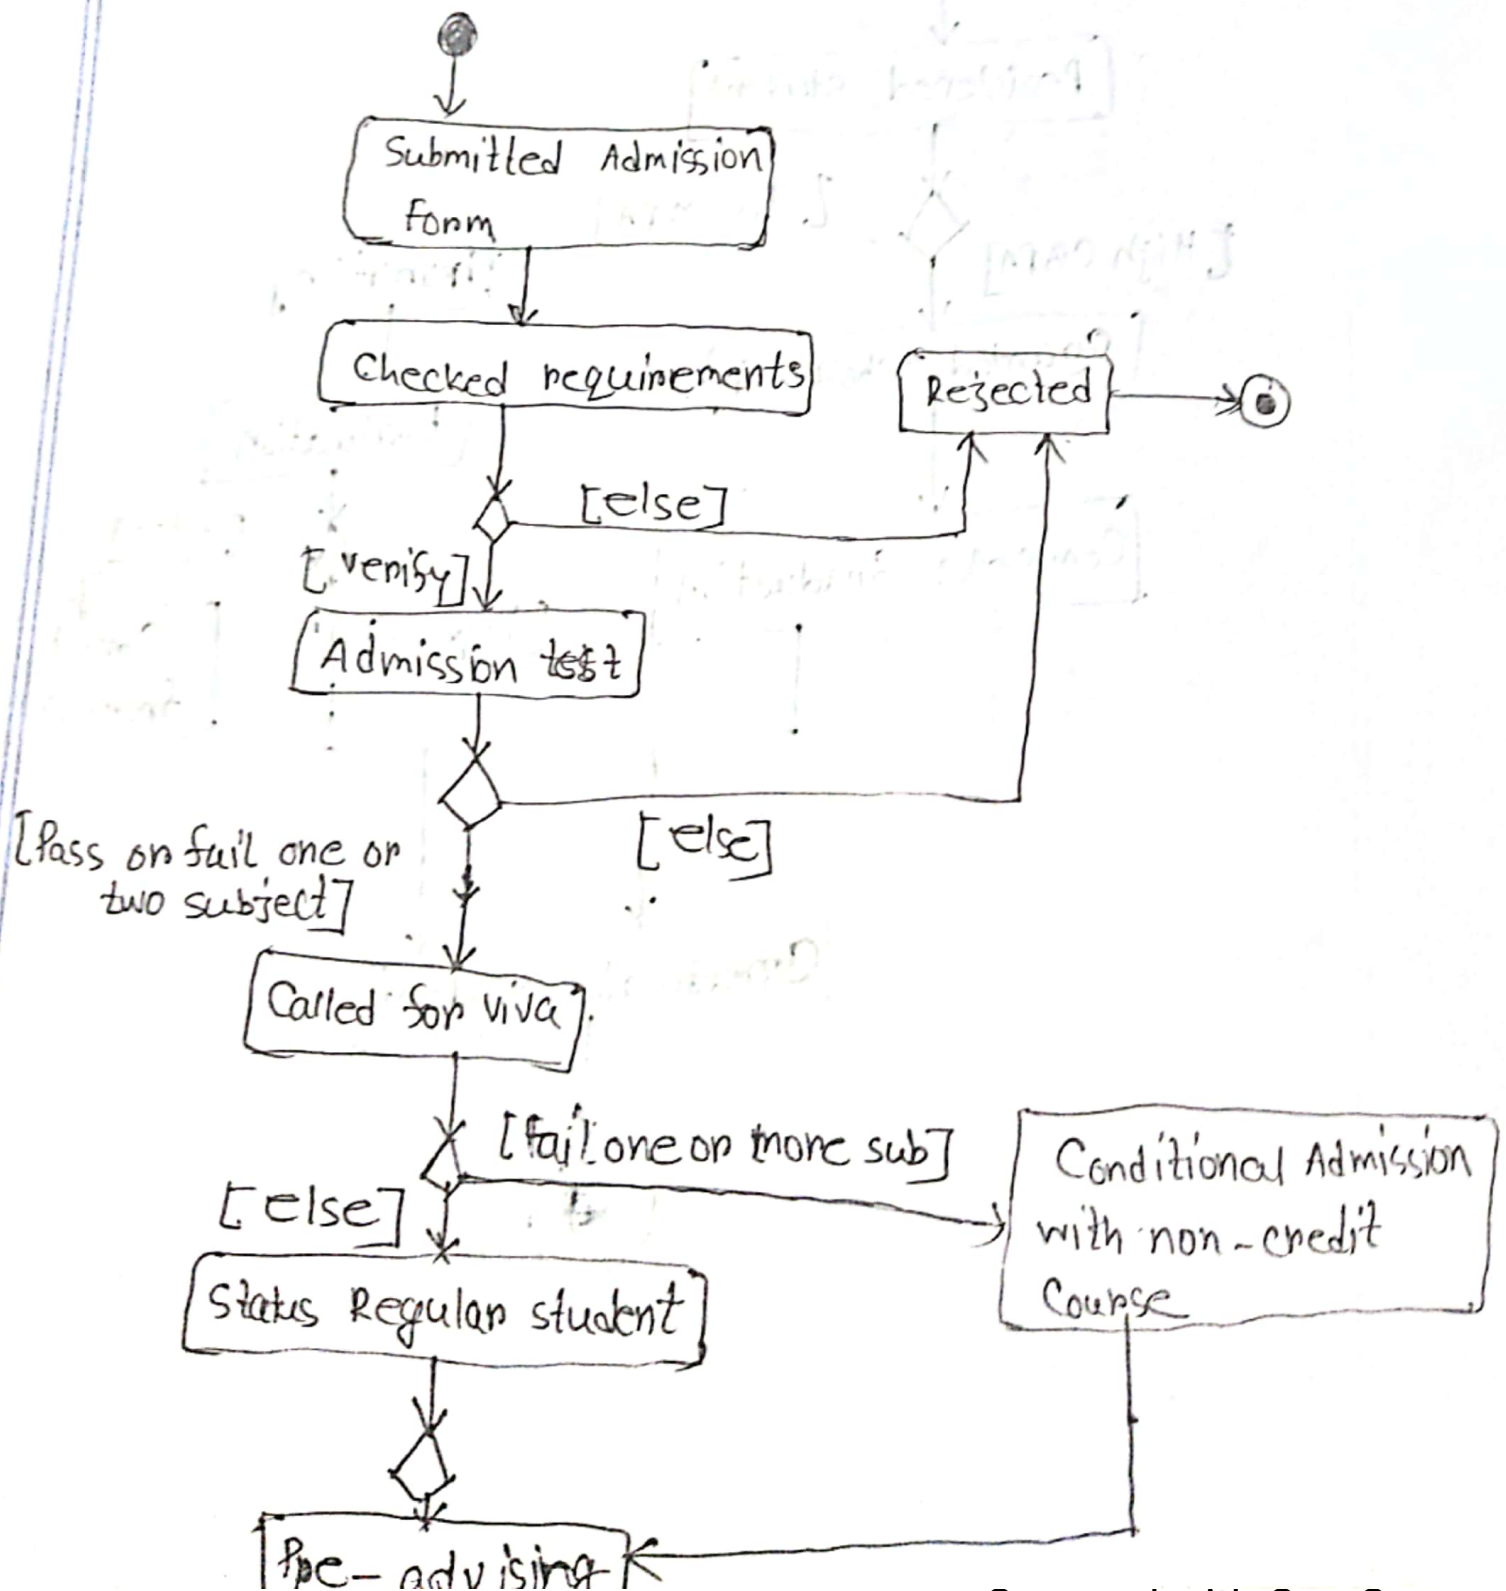 Submitted Admission
form
Checked requirements
Rejected
[else]
[verify]
Admission test
[Pass or fail one or
two subject]
[else]
Called for viva
[fail one or more sub]
[else]
Conditional Admission
with non-credit
Course
Status Regular student
Pre-advising